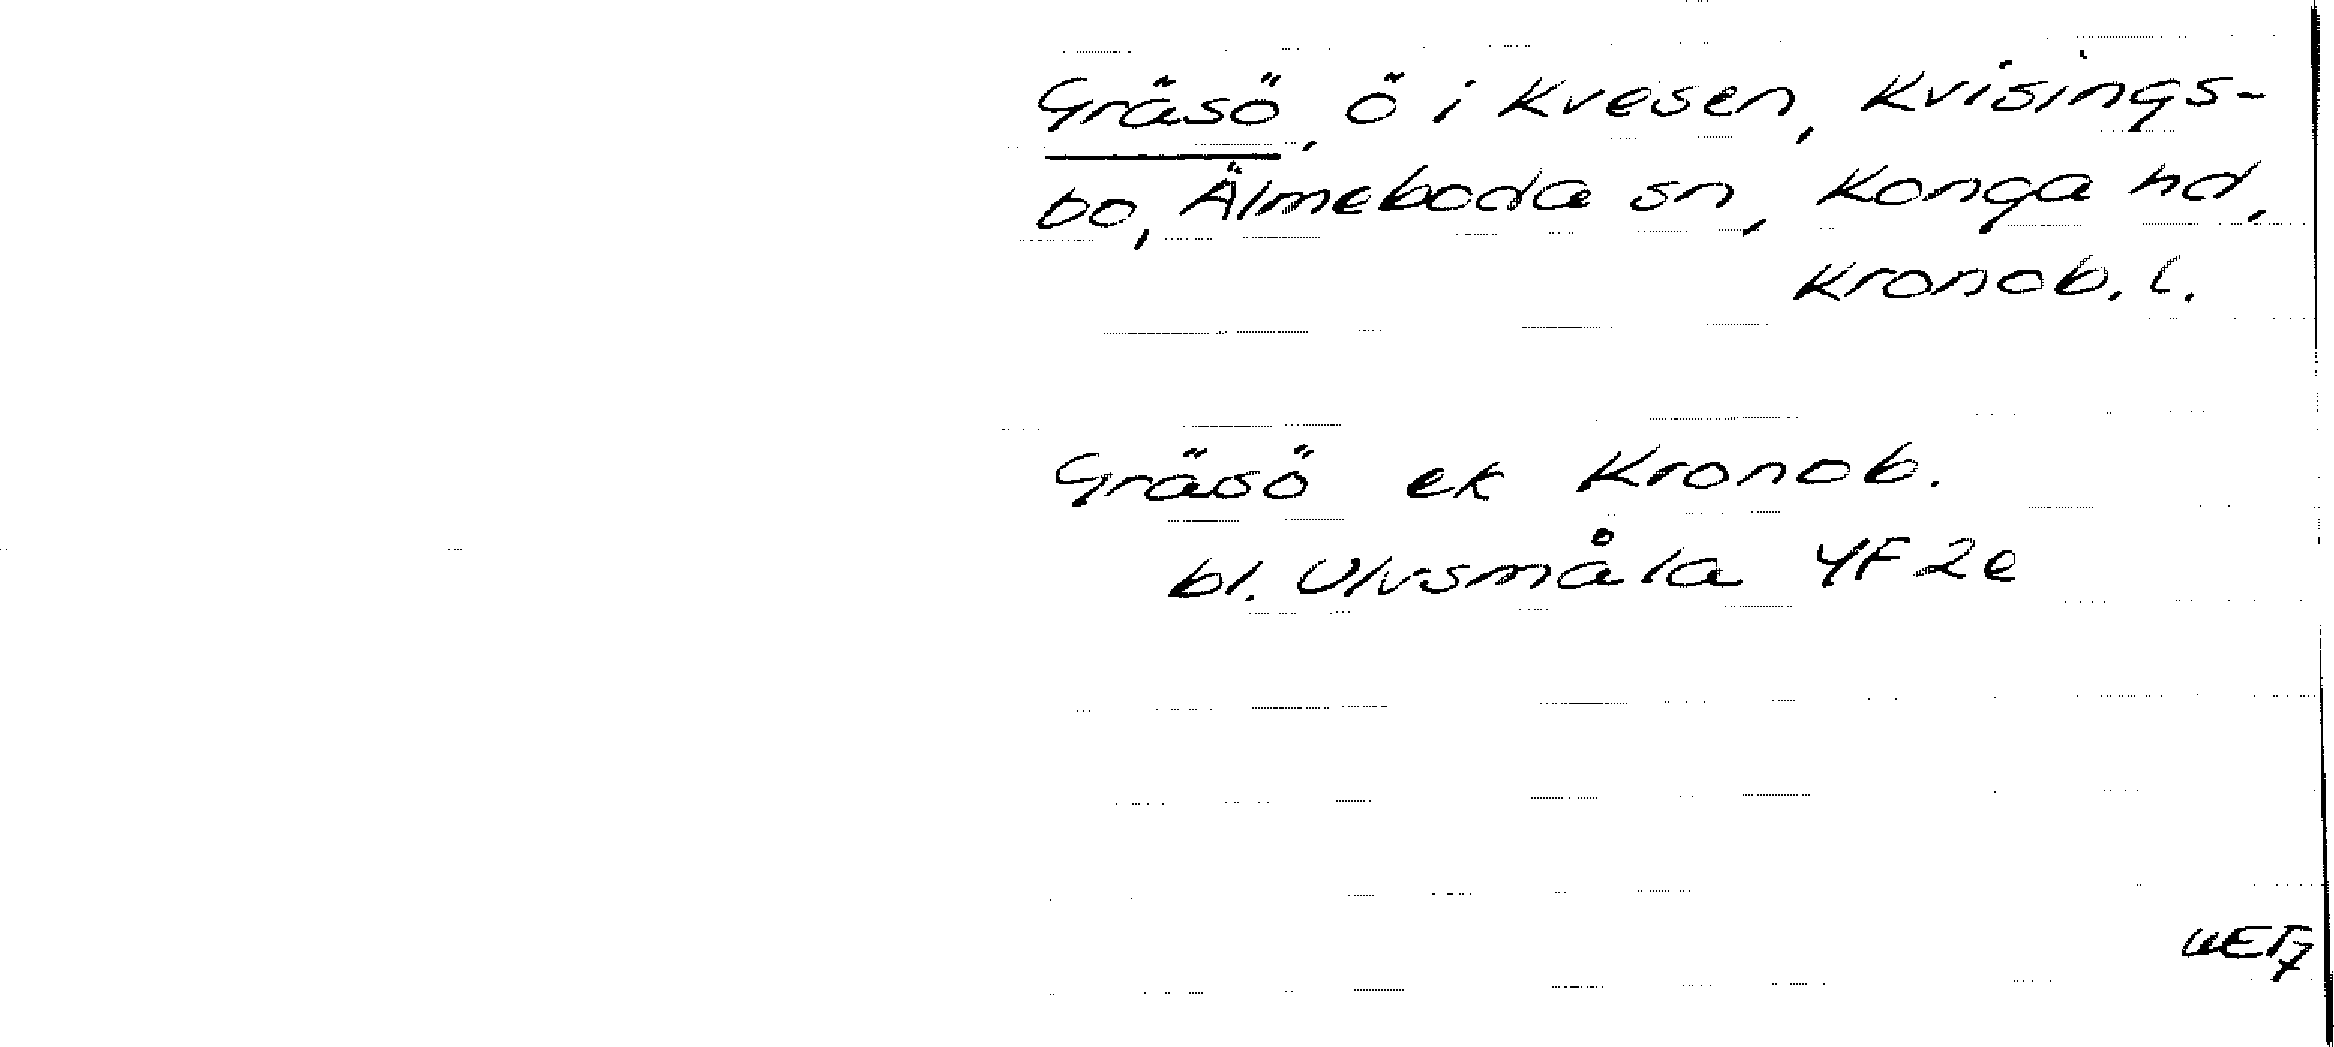 Gräsö, ö i Kvesen, Kvisings-
bo, Älmeboda sn, Konga hd,
Kronob. l.
Gräsö ek Kronob.
bl. Ulvsmåla 4F 2e